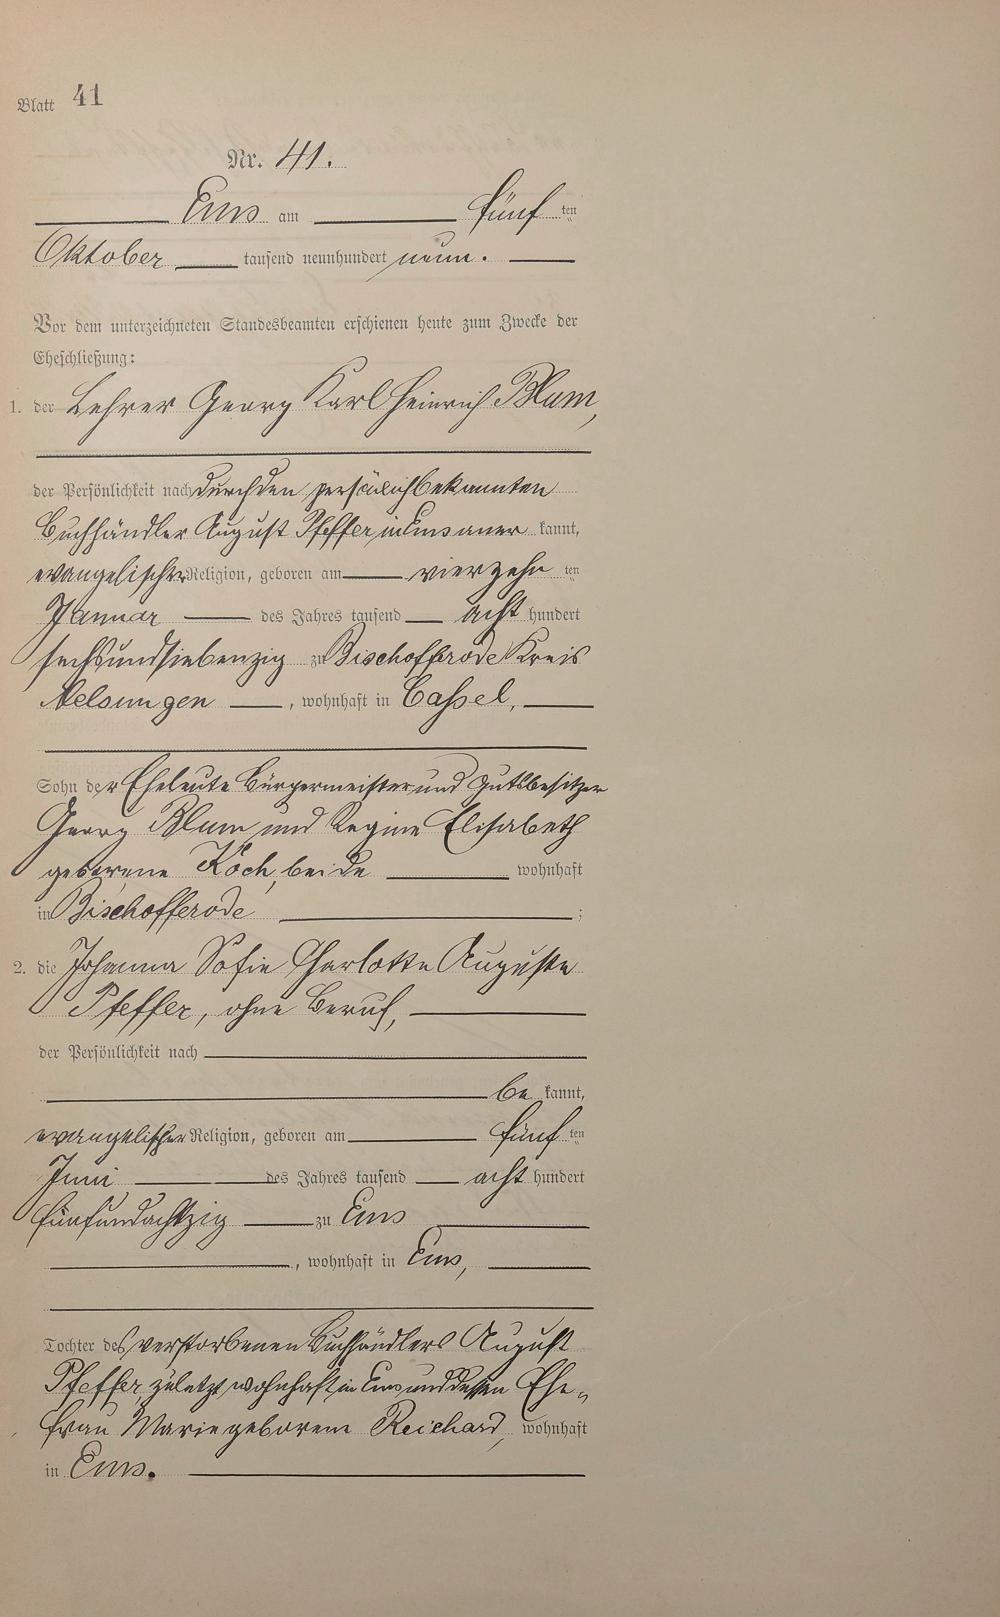 Blatt 41
Nr. 41.
Ems am fünf ten
Oktober tausend neunhundert neun.
Vor dem unterzeichneten Standesbeamten erschienen heute zum Zwecke der
Eheschließung:
1. der Lehrer Georg Karl Heinrich Blum,
der Persönlichkeit nach durch den persönlich bekannten
Buchhändler August Pfeffer in Ems aner kannt,
evangelischer Religion, geboren am vierzehn ten
Januar des Jahres tausend acht hundert
sechsundsiebenzig zu Bischofferode Kreis
Melsungen, wohnhaft in Cassel,
Sohn der Eheleute Bürgermeister und Gutsbesitzer
Georg Blum und Regine Elisabeth
geborene Koch, beide wohnhaft
in Bischofferode;
2. die Johanna Sofie Charlotte Auguste
Pfeffer, ohne Beruf,
der Persönlichkeit nach
be kannt,
evangelischer Religion, geboren am fünf ten
Juni des Jahres tausend acht hundert
fünfundachtzig zu Ems
, wohnhaft in Ems,
Tochter des verstorbenen Buchhändlers August
Pfeffer, zuletzt wohnhaft in Ems und dessen Ehe-
frau Marie geborene Reichard, wohnhaft
in Ems.